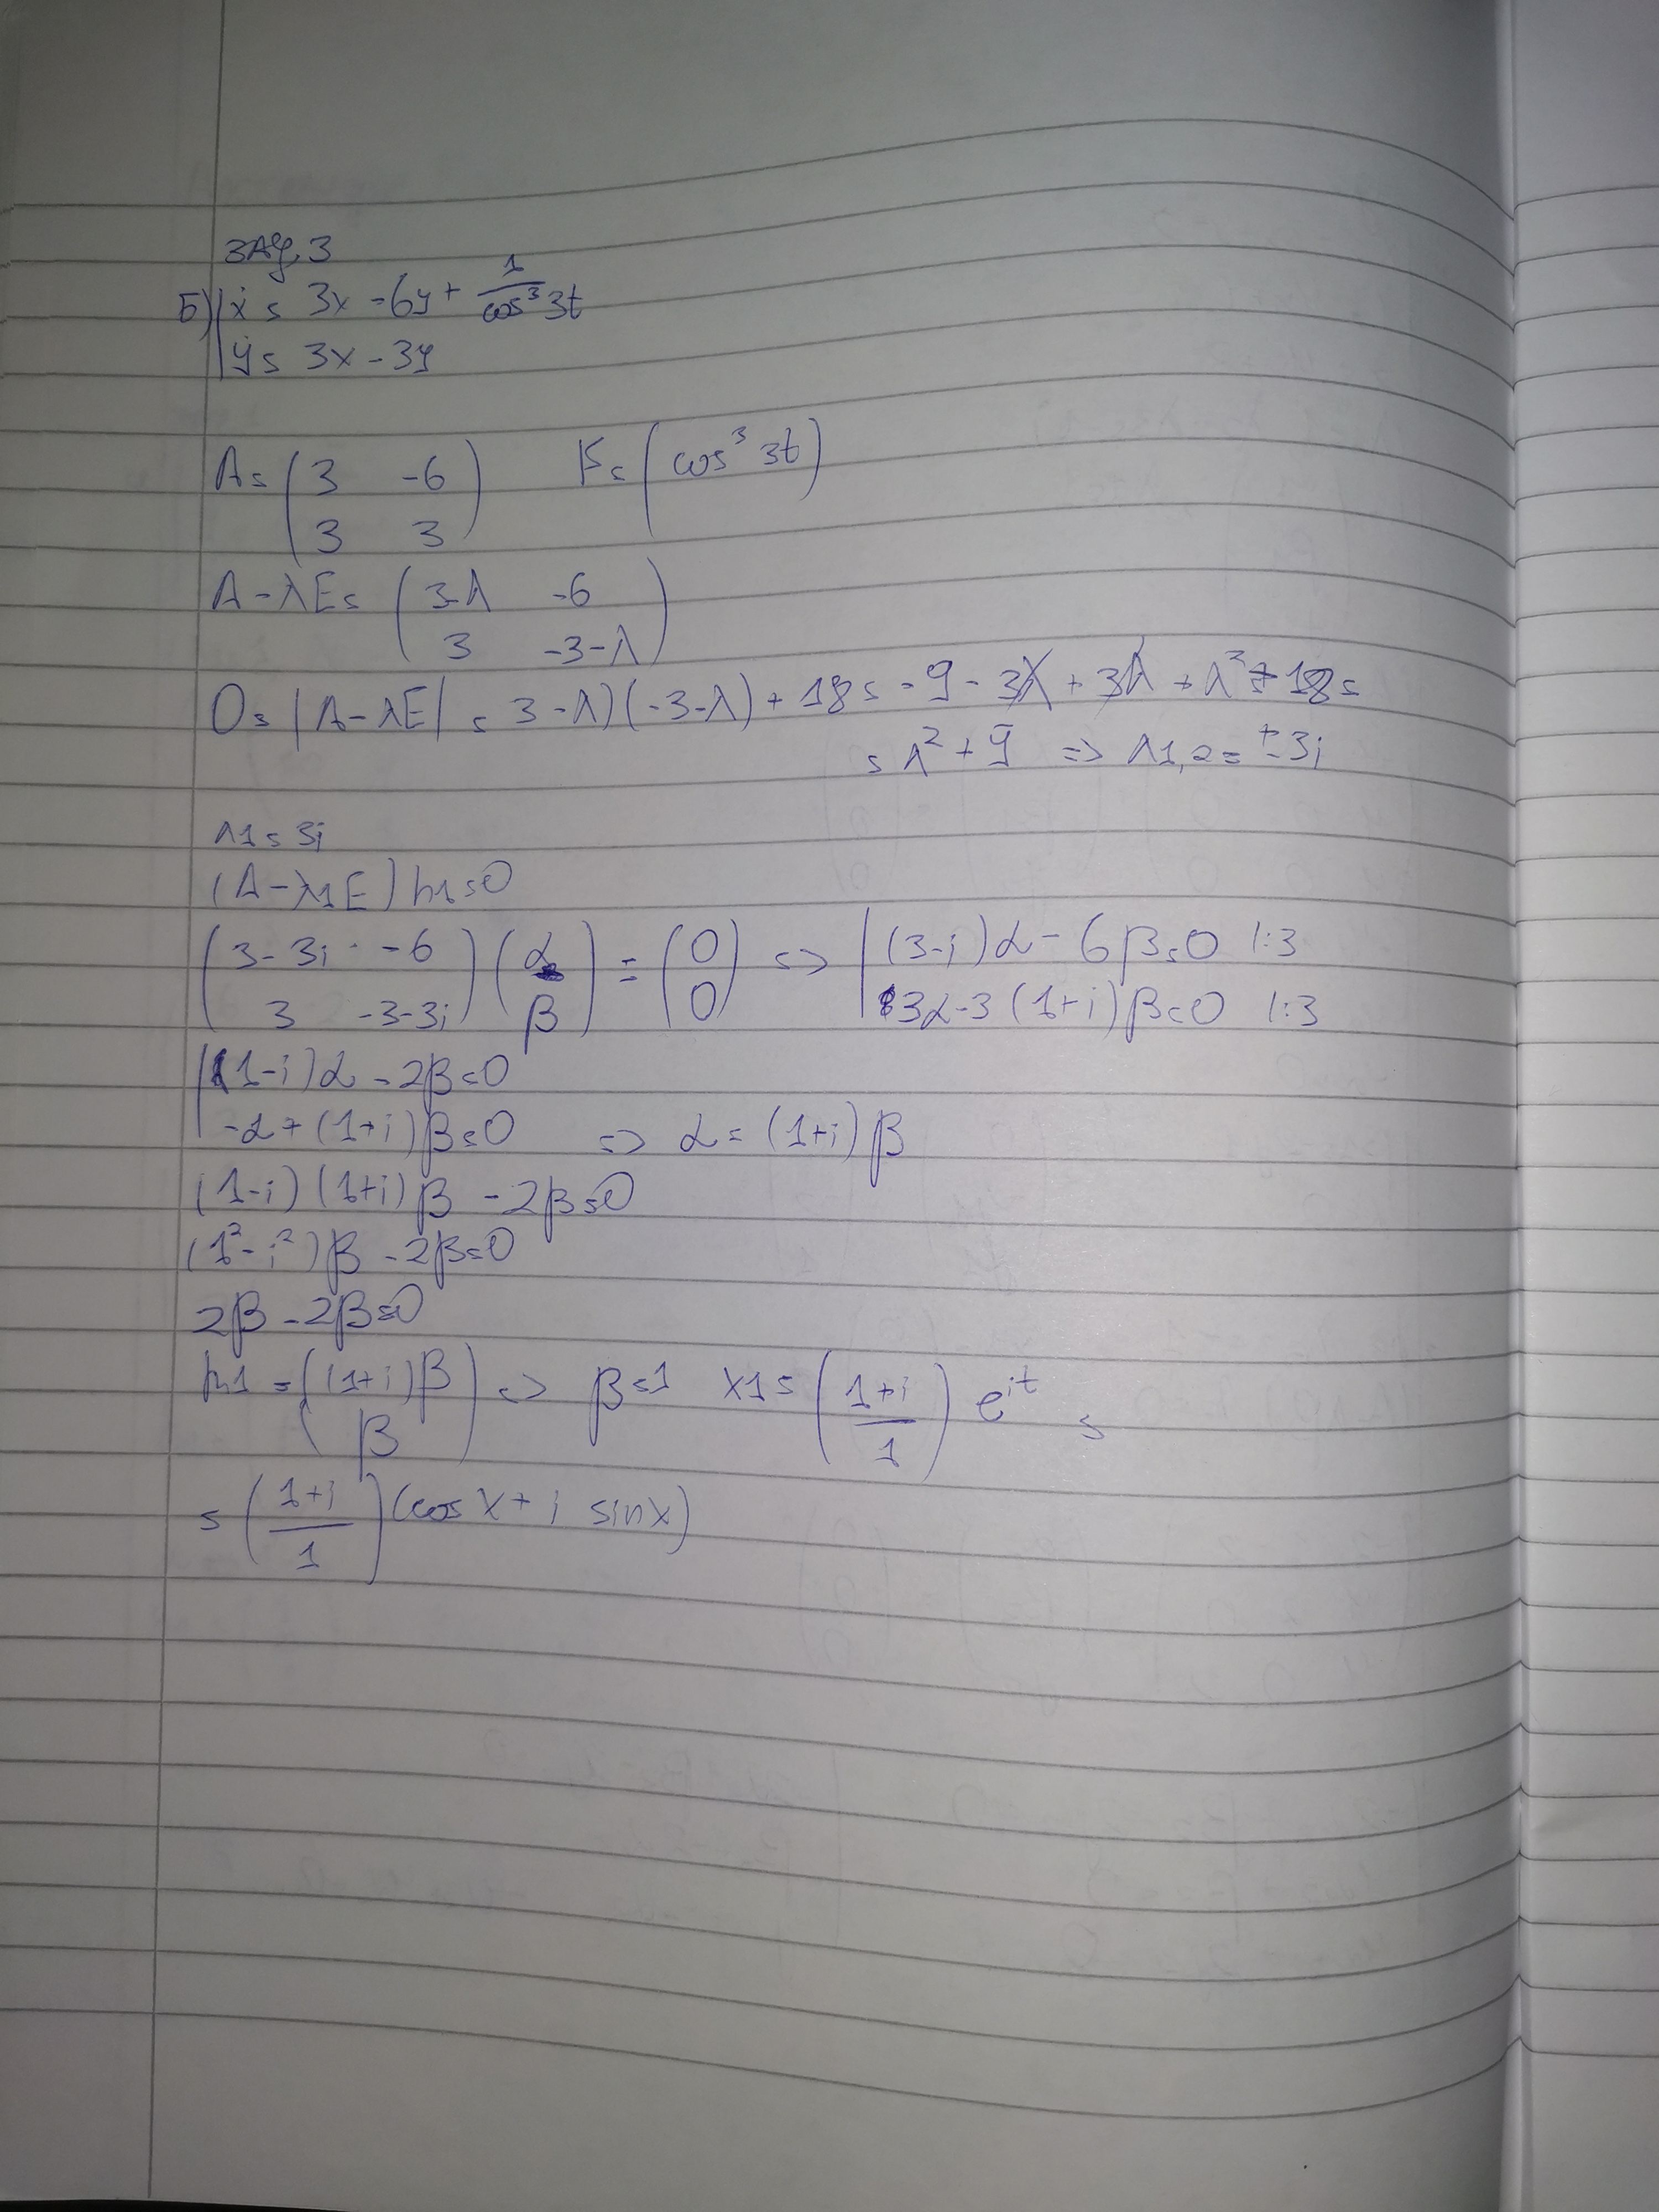 ЗАД. 3
Б) | ẋ = 3x - 6y + 1/cos³3t
| ẏ = 3x - 3y
A = (3 -6; 3 3) F = (cos³ 3t)
A - λE = (3-λ -6; 3 -3-λ)
0 = |A - λE| = 3-λ)(-3-λ) + 18 = -9 - 3λ + 3λ + λ² + 18 =
= λ² + 9 => λ1,2 = ±3i
λ1 = 3i
(A - λ1E) h1 = 0
(3-3i -6; 3 -3-3i) (α; β) = (0; 0) => | (3-i)α - 6β = 0 |:3
| 3α - 3(1+i)β = 0 |:3
| (1-i)α - 2β = 0
| -α + (1+i)β = 0 => α = (1+i)β
(1-i)(1+i)β - 2β = 0
(1² - i²)β - 2β = 0
2β - 2β = 0
h1 = ((1+i)β; β) => β = 1 x1 = (1+i/1) e^{it} =
= (1+i/1) (cos x + i sin x)